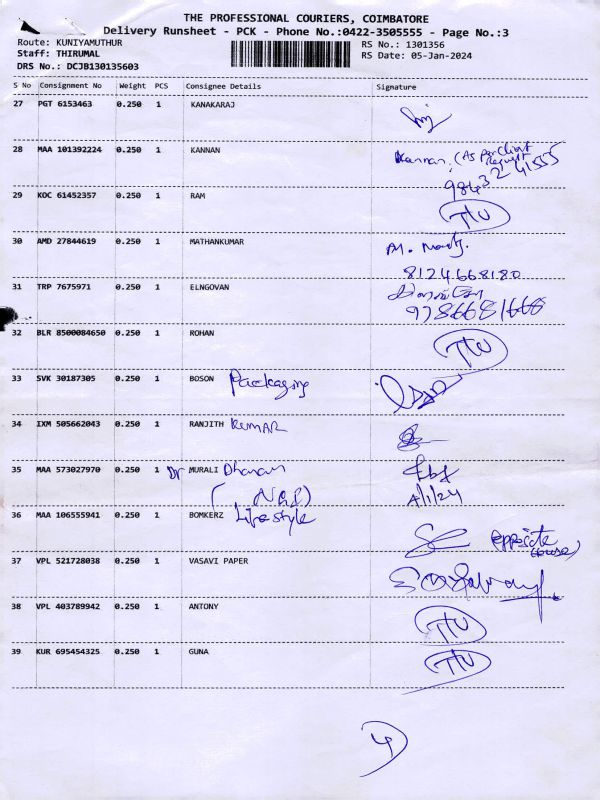 THE PROFESSIONAL COURIERS, COIMBATORE
Delivery Runsheet - PCK - Phone No.:0422-3505555 - Page No.:3
Route: KUNIYAMUTHUR
Staff: THIRUMAL
DRS No.: DCJB130135603
RS No.: 1301356
RS Date: 05-Jan-2024
S No Consignment No Weight PCS Consignee Details Signature
27 PGT 6153463 0.250 1 KANAKARAJ
28 MAA 101392224 0.250 1 KANNAN Kannan, (As per client request
98432 41555
29 KOC 61452357 0.250 1 RAM
30 AMD 27844619 0.250 1 MATHANKUMAR
8124668180
31 TRP 7675971 0.250 1 ELNGOVAN
32 BLR 8500084650 0.250 1 ROHAN
33 SVK 30187305 0.250 1 BOSON Packaging
34 IXM 505662043 0.250 1 RANJITH KUMAR
35 MAA 573027970 0.250 1 Dr MURALI
4/1/24
36 MAA 106555941 0.250 1 BOMKERZ Lifestyle
opposite
house)
37 VPL 521728038 0.250 1 VASAVI PAPER
38 VPL 403789942 0.250 1 ANTONY
39 KUR 695454325 0.250 1 GUNA